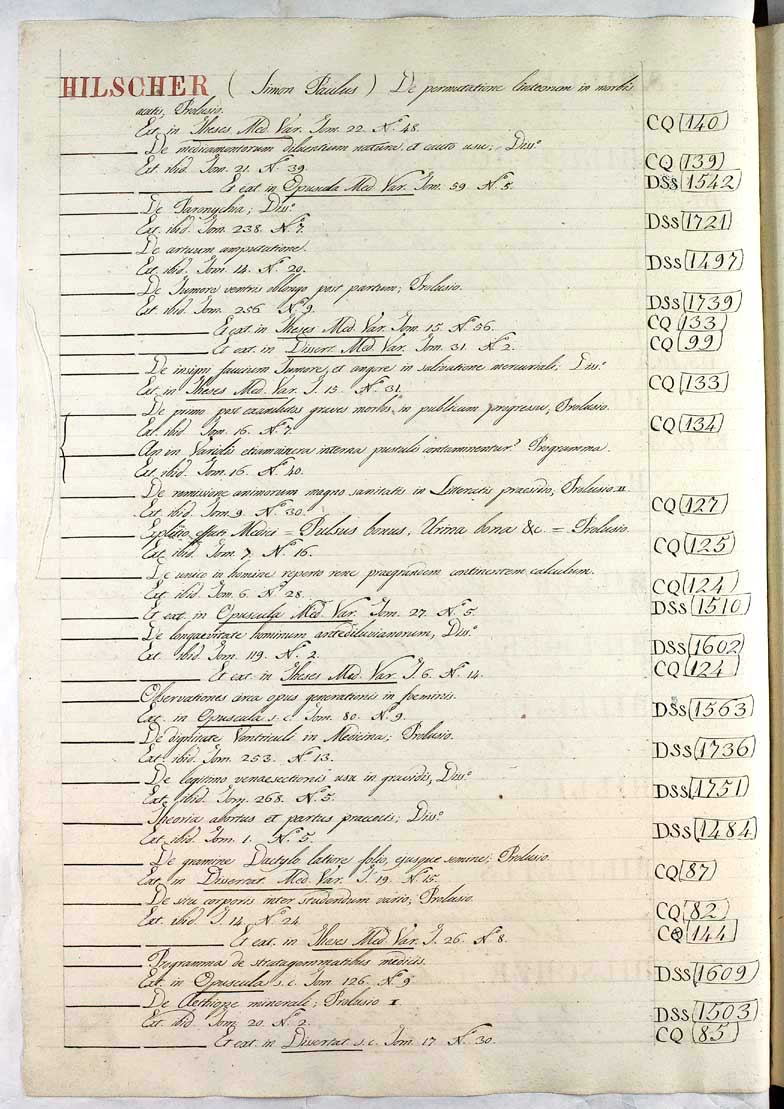 HILSCHER ( Simon Paulus ) De permutatione linteorum in morbis
acutis, Prolusio.
Ext. in Theses Med. Var. Tom. 22. Nº 48. CQ 140
De medicamentorum diluentium natura, et cauto usu; Dissº
Ext. ibid. Tom. 21. Nº 39. CQ 139
Et ext. in Opuscula Med. Var. Tom. 59 Nº 5. DSS 1542
De Paronychia; Dissº
Ext. ibid. Tom. 238. Nº 7. DSS 1721
De artuum amputatione.
Ext. ibid. Tom. 14. Nº 20. DSS 1497
De Tumore ventris oblongo post partum; Prolusio.
Ext. ibid. Tom. 256. Nº 9. DSS 1739
Et ext. in Theses Med. Var. Tom. 15. Nº 56. CQ 133
Et ext. in Dissert. Med. Var. Tom. 31 Nº 2. CQ 99
De insigni faucium Tumore, et angore in salivatione mercuriali; Dissº
Ext. in Theses Med. Var. T. 15. Nº 31. CQ 133
De primo post exantlatos graves morbos in publicum progressu, Prolusio.
Ext. ibid. Tom. 16. Nº 7. CQ 134
An in Variolis etiam viscera interna pustulis contaminentur? Programma.
Ext. ibid. Tom. 16. Nº 40.
De remissione animorum magno sanitatis in Litteratis praesidio, Prolusio II
Ext. ibid. Tom. 9. Nº 30. CQ 127
Explitio effati Medici = Pulsus bonus, Urina bona &c. = Prolusio.
Ext. ibid. Tom. 7. Nº 16. CQ 125
De unico in homine reperto rene praegrandem continentem calculum.
Ext. ibid. Tom. 6. Nº 28. CQ 124
Et ext. in Opuscula Med. Var. Tom. 27. Nº 5. DSS 1510
De longaevitate hominum antediluvianorum, Dissº
Ext. ibid. Tom. 119. Nº 2. DSS 1602
Et ext. in Theses Med. Var. T. 6. Nº 14. CQ 124
Observationes circa opus generationis in foeminis.
Ext. in Opuscula s.c. Tom. 80. Nº 9. DSS 1563
De dignitate Ventriculi in Medicina; Prolusio.
Ext. ibid. Tom. 253. Nº 13. DSS 1736
De legitimo venaesectionis usu in gravidis, Dissº
Ext. ibid. Tom. 268. Nº 5. DSS 1751
Theoria abortus et partus praecocis; Dissº
Ext. ibid. Tom. 1. Nº 5. DSS 1484
De gramine Dactylo latiore folio, ejusque semine; Prolusio.
Ext. in Dissertat. Med. Var. T. 19. Nº 15. CQ 87
De situ corporis inter studendum vario; Prolusio.
Ext. ibid. T. 14. Nº 24 CQ 82
Et ext. in Theses Med. Var. T. 26. Nº 8. CQ 144
Programma de stratagemmatibus medicis.
Ext. in Opuscula s.c. Tom. 126. Nº 9 DSS 1609
De Aethiope minerale; Prolusio I
Ext. ibid. Tom. 20. Nº 2. DSS 1503
Et ext. in Dissertat s.c. Tom. 17 Nº 30. CQ 85